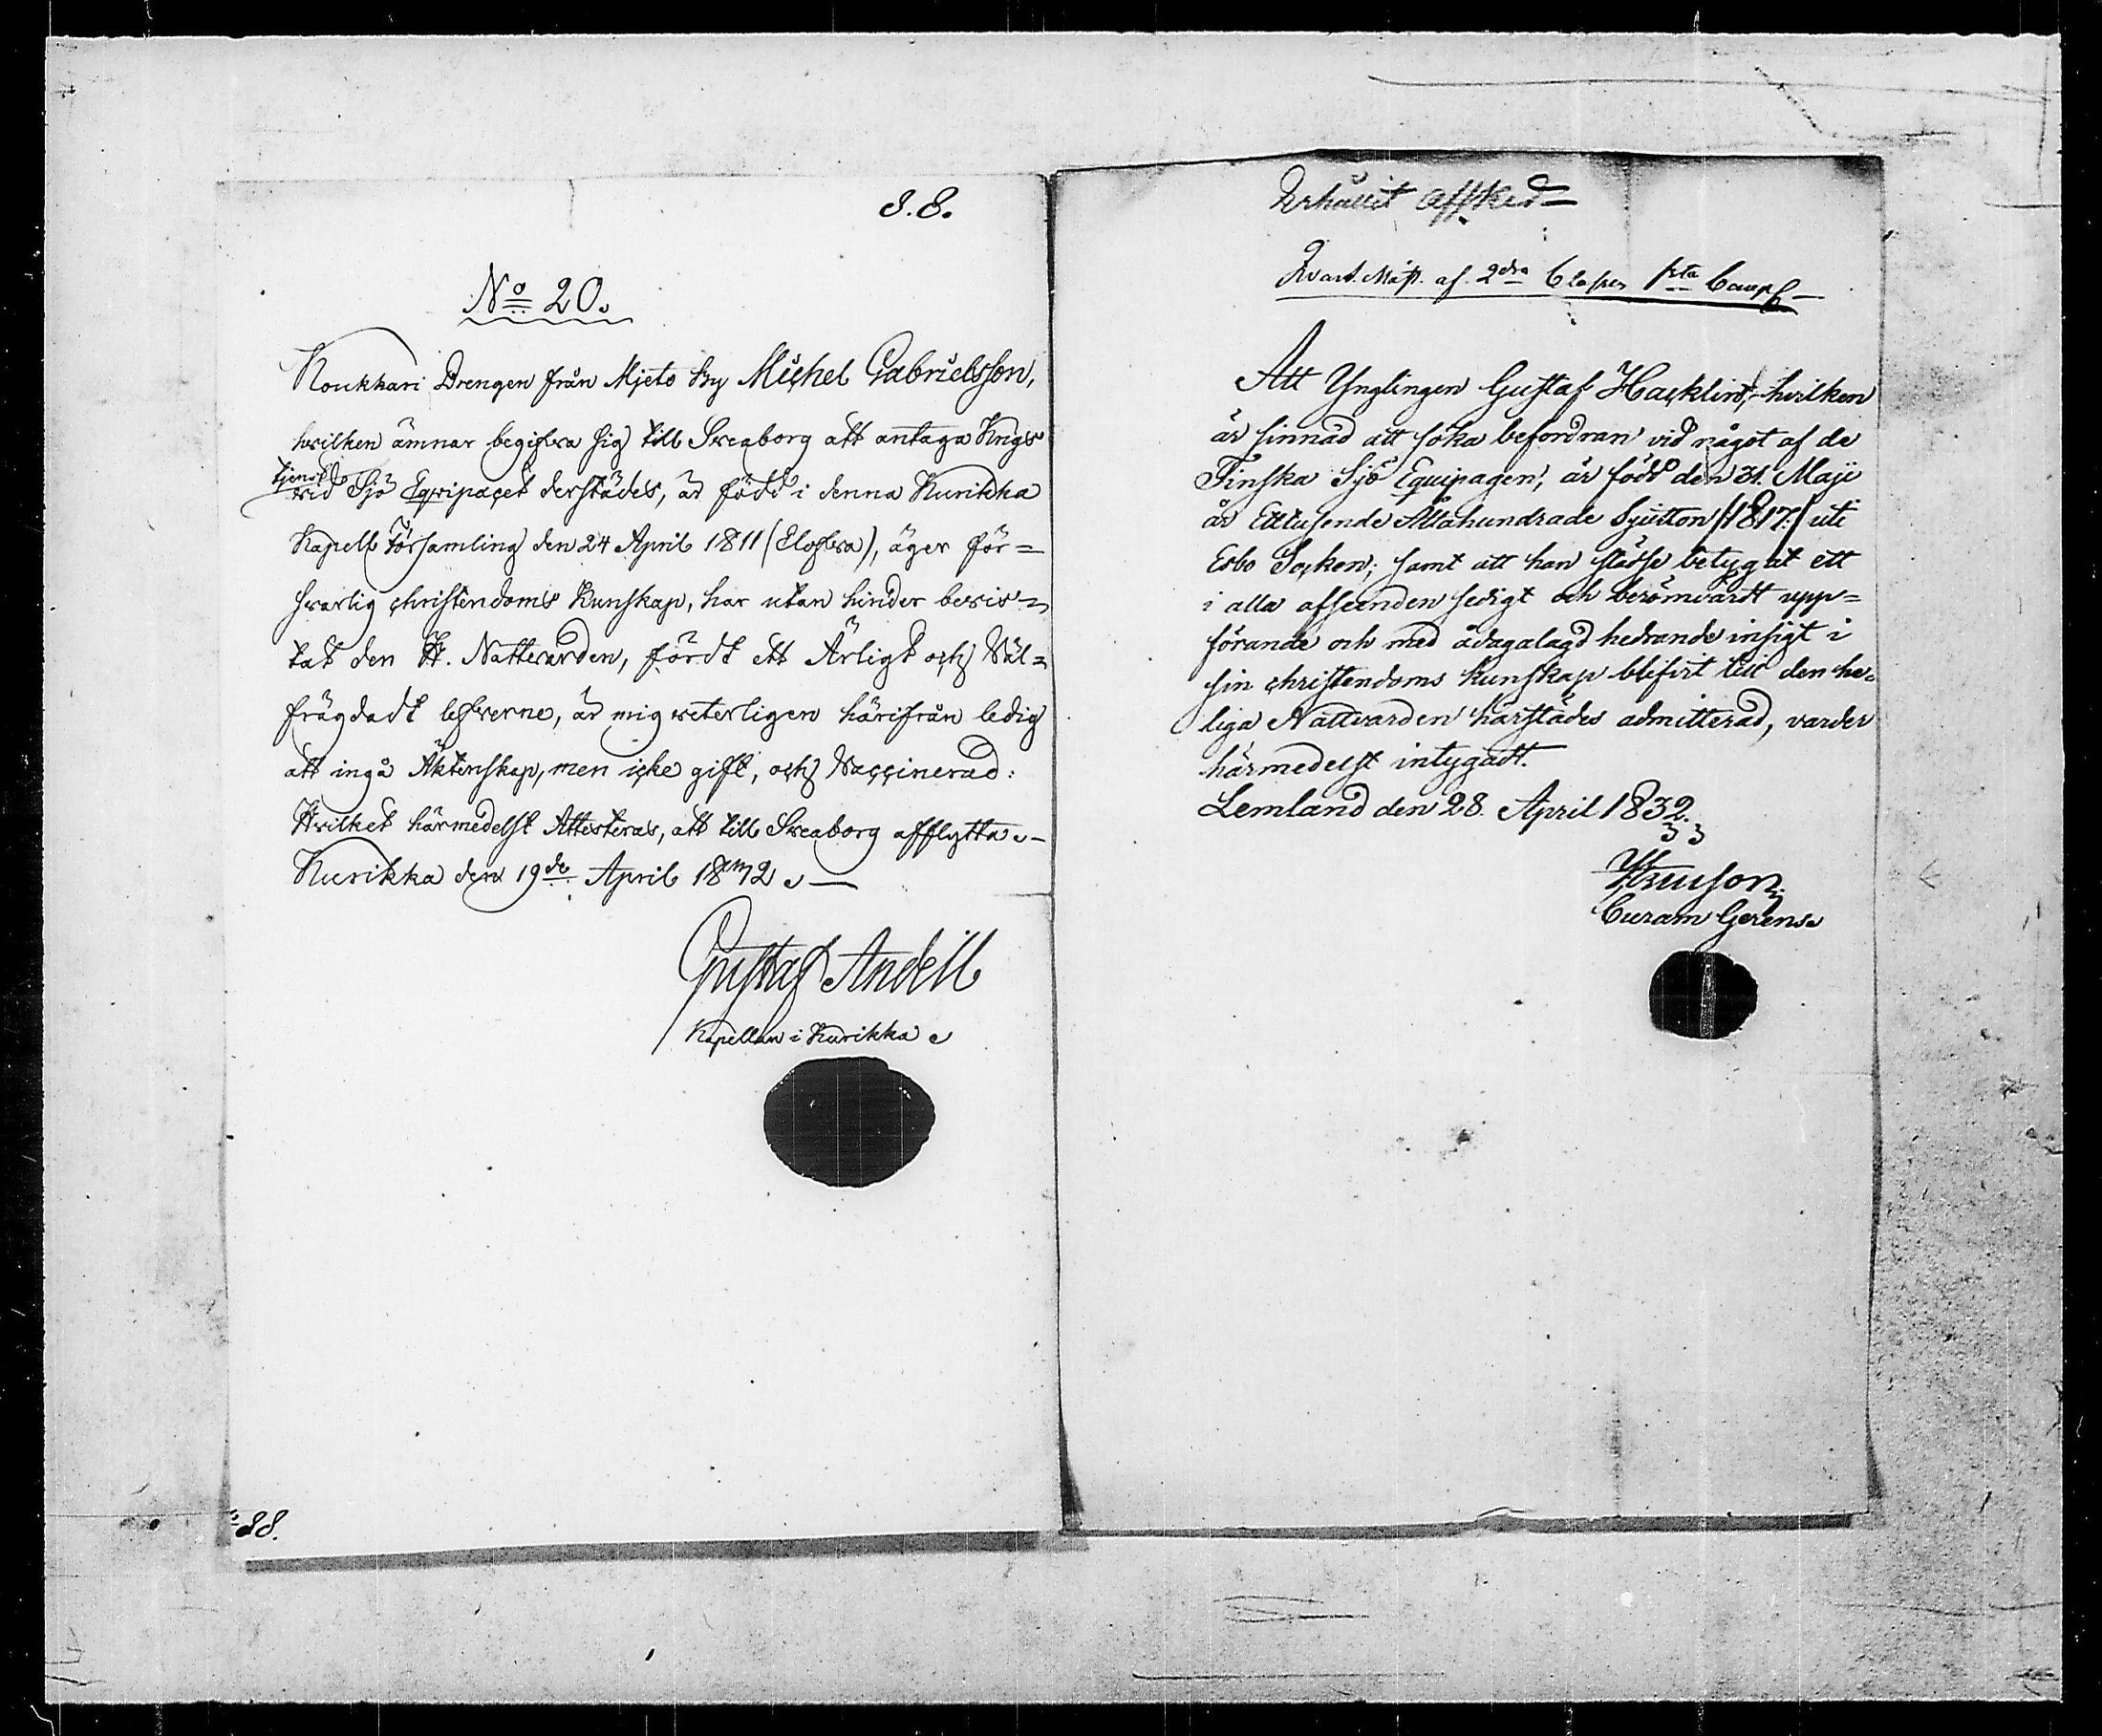 8.8.
No 20.
Koukkari Drengen från Mjeto By Michel Gabrielsson,
hvilken ämnar begifva sig till Sveaborg att antaga Krigs
tjenst
vid Sjö Eqvipaget derstädes, är född i denna Kurikka
Kapell Församling den 24 April 1811 (Elofva), äger för=
svarlig christendoms Kunskap, har utan hinder bevis=
tat den H. Nattvarden, fördt ett Ärligt och Väl=
frägdadt lefverne, är mig veterligen härifrån ledig
att ingå Äktenskap, men icke gift, och Vaccinerad:
Hvilket härmedelst Attesteras, att till Sveaborg afflytta.
Kurikka den 19de April 1832.
Gustaf Andell
Kapellan i Kurikka
88.
Erhållit affsked
Kvart. Mäst. af 2dra Classen 1sta Comp
Att Ynglingen Gustaf Hacklin, hvilken
är sinnad att söka befordran vid något af de
Finska Sjö Equipagen, är född den 31. Maji
år Ettusende Åttahundrade Sjutton /:1817:/ uti
Esbo Socken; samt att han städse betygat ett
i alla afseenden sedigt och berömvärdt upp=
förande och med ådagalagd hedrande insigt i
sin christendoms kunskap blifvit till den he=
liga Nattvarden härstädes admitterad, varder
härmedelst intygadt.
Lemland den 28. April 1832.
Curam Gerens.